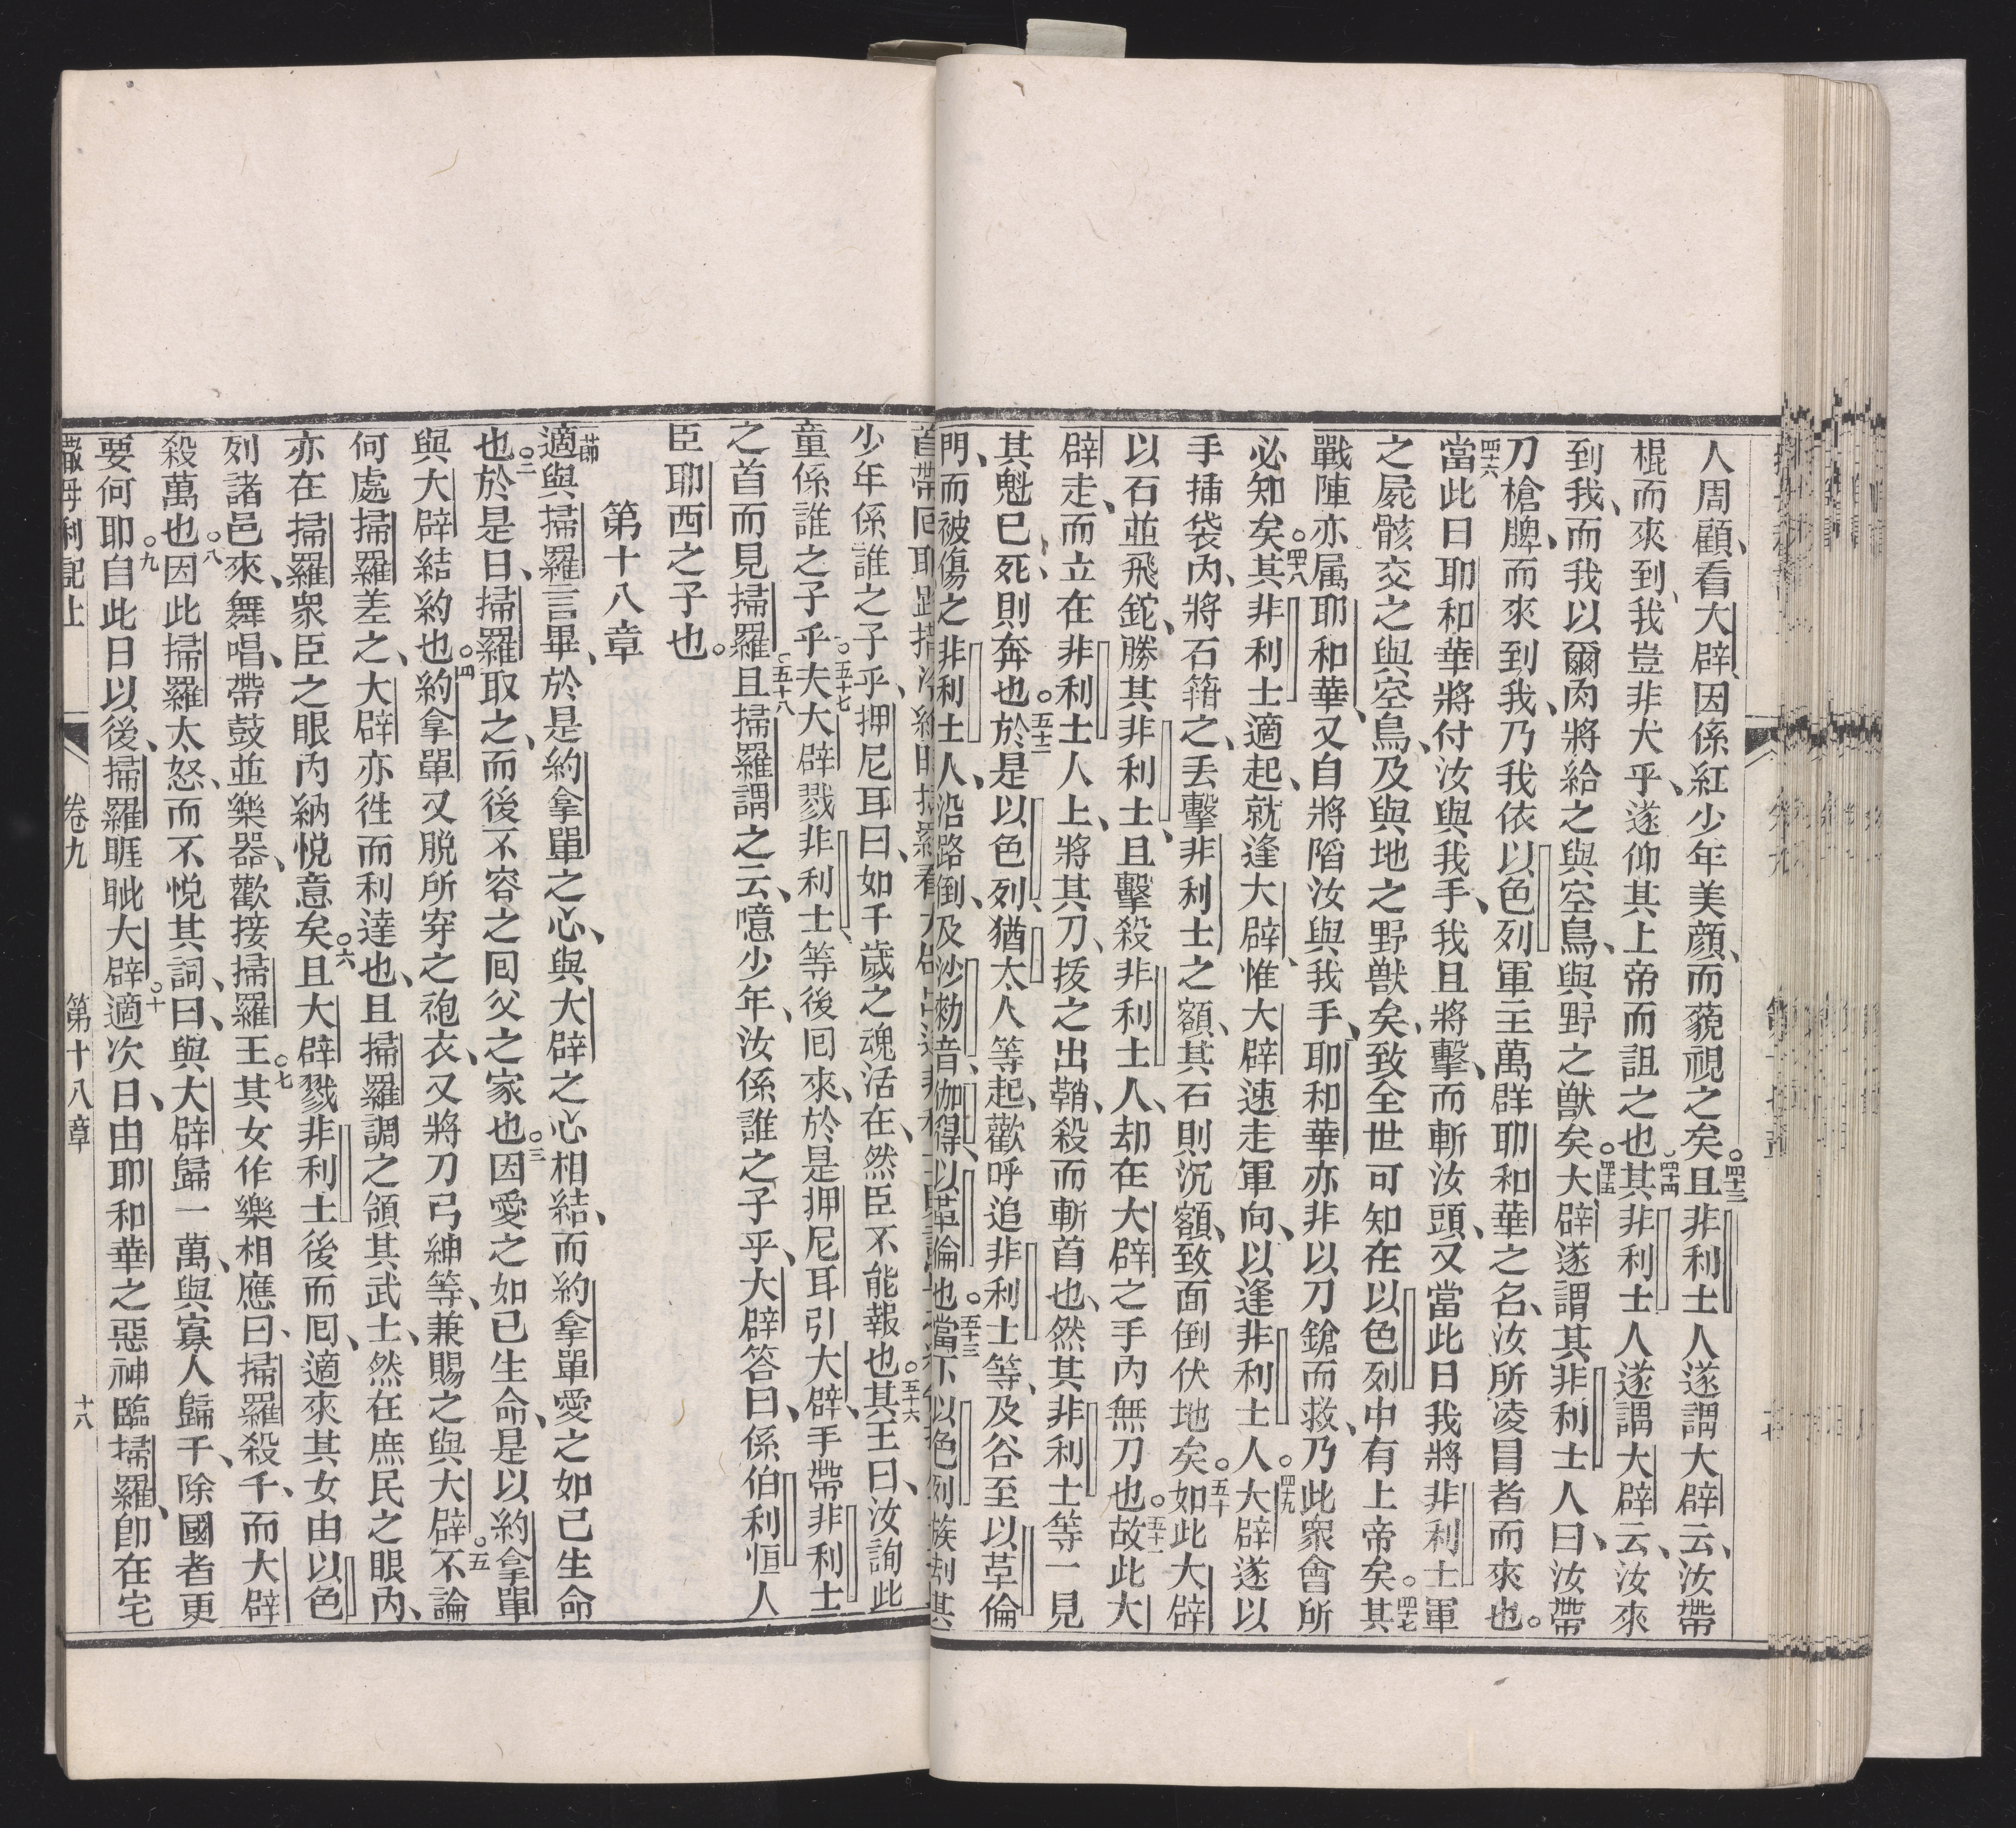 人周顧、看大辟、因係紅少年美顏、而藐視之矣。四十三且非利士人遂謂大辟云、汝帶
棍而來到、我豈非犬乎、遂仰其上帝而詛之也。四十四其非利士人遂謂大辟云、汝來
到我、而我以爾肉將給之與空鳥、與野之獸矣。四十五大辟遂謂其非利士人曰、汝帶
刀槍、牌、而來到我、乃我依以色列軍主萬群耶和華之名、汝所凌冒者而來也。
四十六當此日耶和華將付汝與我手、我且將擊、而斬汝頭、又當此日我將非利士軍
之屍骸交之與空鳥、及與地之野獸矣、致全世可知在以色列中有上帝矣。四十七其
戰陣亦属耶和華、又自將陷汝與我手、耶和華亦非以刀鎗而救、乃此衆會所
必知矣。四十八其非利士適起、就逢大辟、惟大辟速走軍向、以逢非利士人。四十九大辟遂以
手插袋內、將石箝之、丟擊非利士之額、其石則沉額、致面倒伏地矣。五十如此大辟
以石並飛鉈、勝其非利士、且擊殺非利士人、却在大辟之手內無刀也。五十一故此大
辟走、而立在非利士人上、將其刀、拔之出鞘、殺而斬首也、然其非利士等一見
其魁已死、則奔也。五十二於是以色列、猶太人等起、歡呼追非利士等、及谷至以革倫
門、而被傷之非利士人、沿路倒、及沙勑音、伽得、以革倫也。五十三當下以色列族刦其
少年係誰之子乎、押尼耳曰、如千歲之魂活在、然臣不能報也。五十六其王曰、汝詢此
童係誰之子乎。五十七夫大辟戮非利士等後囘來、於是押尼耳引大辟、手帶非利士
之首而見掃羅。五十八且掃羅謂之云、噫少年、汝係誰之子乎、大辟答曰、係伯利恒人
臣耶西之子也。
第十八章
一節適與掃羅言畢、於是約拿單之心、與大辟之心相結、而約拿單愛之如己生命
也。二於是日、掃羅取之、而後不容之囘父之家也。三因愛之如己生命、是以約拿單
與大辟結約也。四約拿單又脫所穿之袍衣、又將刀弓紳等、兼賜之與大辟。五不論
何處掃羅差之、大辟亦徃而利達也、且掃羅調之領其武士、然在庶民之眼內、
亦在掃羅衆臣之眼內納悅意矣。六且大辟戮非利士後而囘、適來其女由以色
列諸邑來、舞唱、帶鼓並樂器、歡接掃羅王。七其女作樂相應曰、掃羅殺千、而大辟
殺萬也。八因此掃羅太怒、而不悅其詞、曰、與大辟歸一萬、與寡人歸千、除國者更
要何耶。九自此日以後、掃羅睚眦大辟。十適次日、由耶和華之惡神臨掃羅、卽在宅
撒母利記上　卷九　第十八章　十八